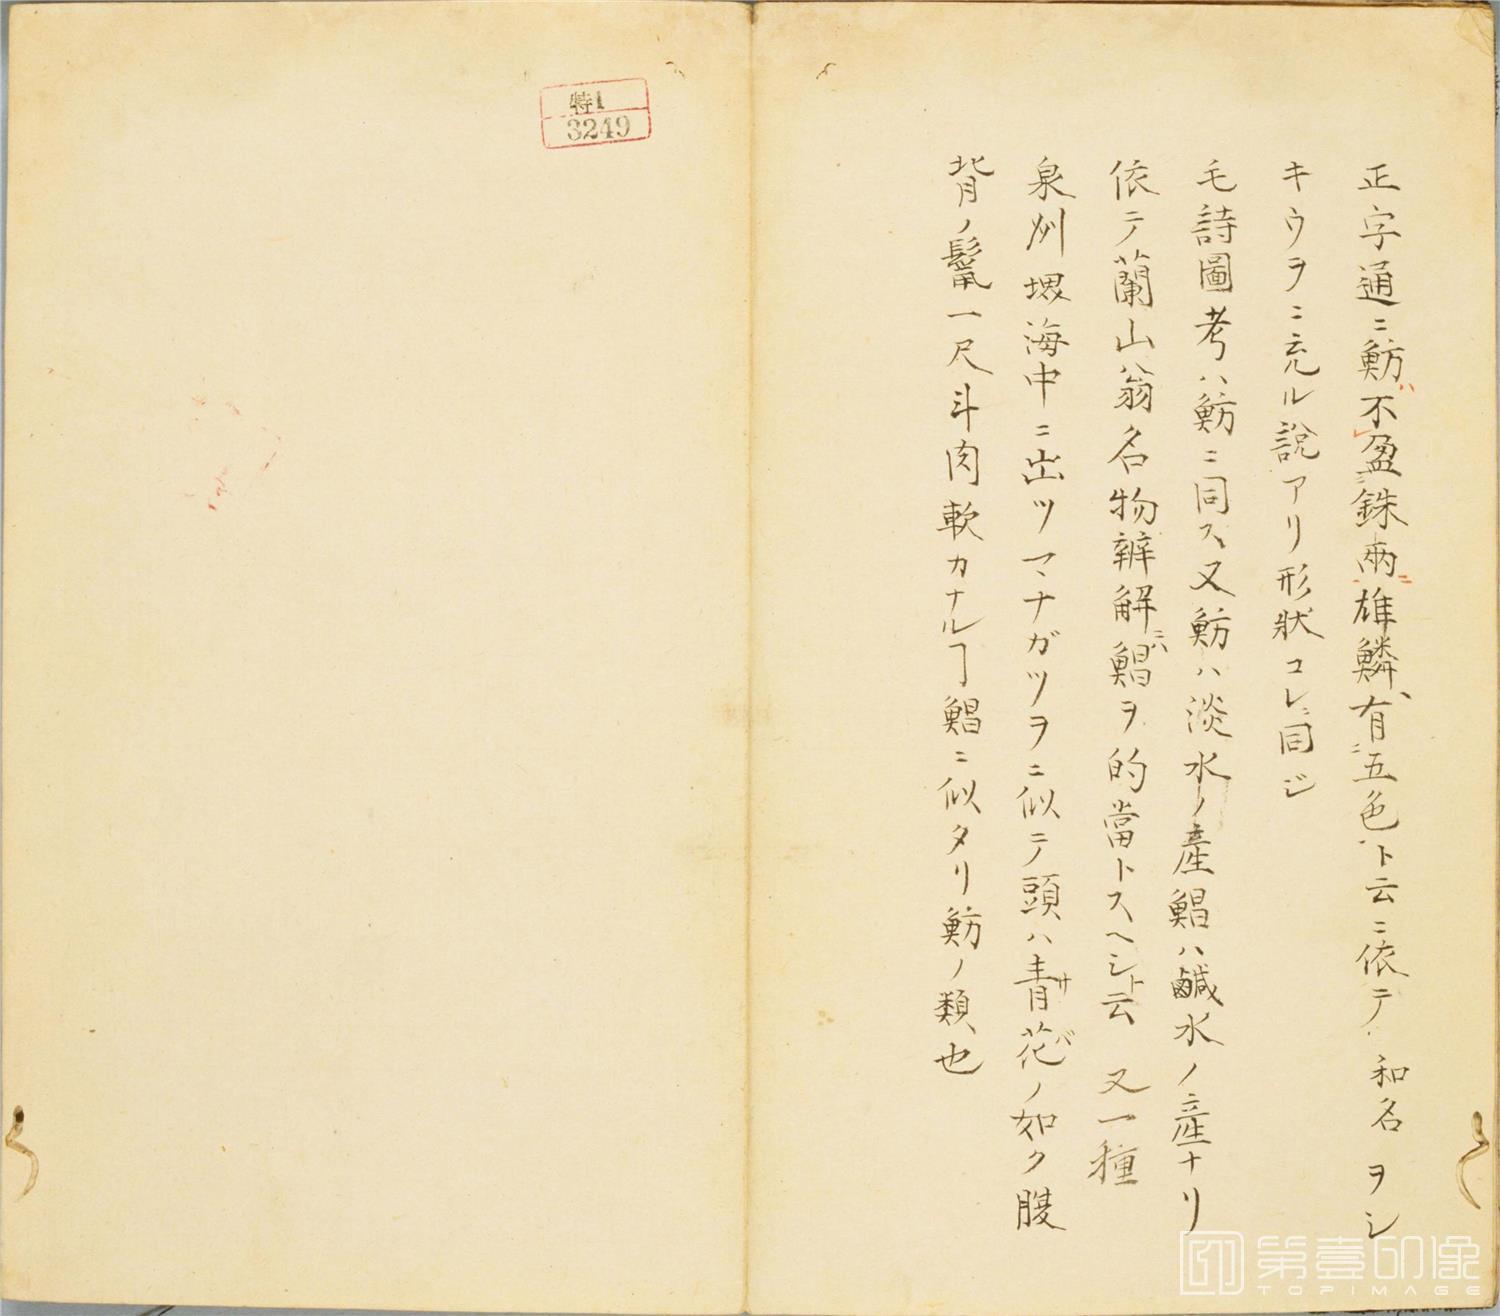 正字通ニ魴ハ不盈銖兩雄鱗、有五色ト云ニ依テ和名ヲシ
キウヲニ充ル說アリ形狀コレニ同ジ
毛詩圖考ハ魴ニ同ス又魴ハ淡水ノ產鯧ハ鹹水ノ產ナリ
依テ蘭山翁名物辨解ニハ鯧ヲ的當トスヘシト云 又一種
泉州堺海中ニ出ツマナガツヲニ似テ頭ハ青花ノ如ク腹
サバ
背ノ鬣一尺斗肉軟カナルヿ鯧ニ似タリ魴ノ類也
特1
3249
第壹印像
TOPIMAGE